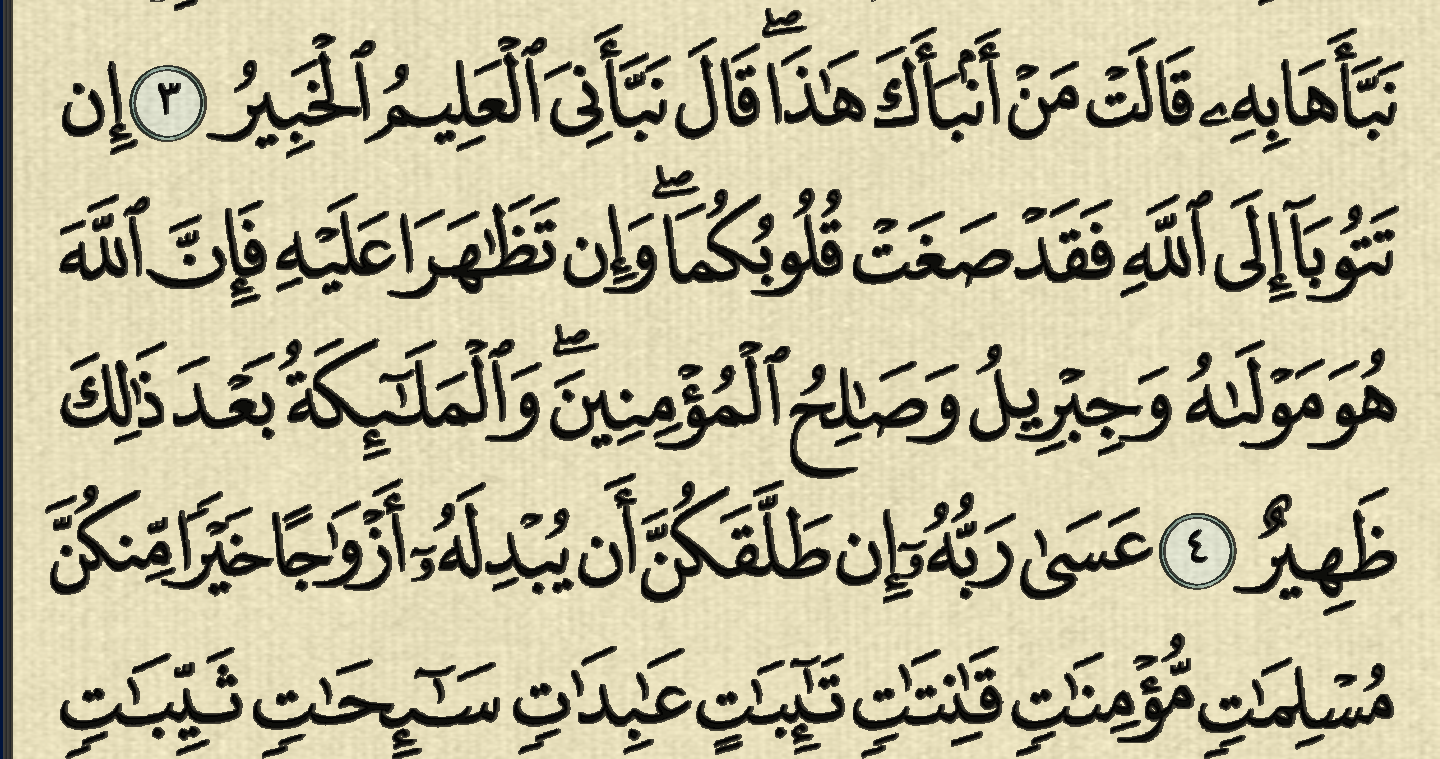 نَبَّأَهَا بِهِۦ قَالَتْ مَنْ أَنۢبَأَكَ هَٰذَا ۖ قَالَ نَبَّأَنِىَ ٱلْعَلِيمُ ٱلْخَبِيرُ ٣ إِن
تَتُوبَآ إِلَى ٱللَّهِ فَقَدْ صَغَتْ قُلُوبُكُمَا ۖ وَإِن تَظَٰهَرَا عَلَيْهِ فَإِنَّ ٱللَّهَ
هُوَ مَوْلَىٰهُ وَجِبْرِيلُ وَصَٰلِحُ ٱلْمُؤْمِنِينَ ۖ وَٱلْمَلَٰٓئِكَةُ بَعْدَ ذَٰلِكَ
ظَهِيرٌ ٤ عَسَىٰ رَبُّهُۥٓ إِن طَلَّقَكُنَّ أَن يُبْدِلَهُۥٓ أَزْوَٰجًا خَيْرًا مِّنكُنَّ
مُسْلِمَٰتٍ مُّؤْمِنَٰتٍ قَٰنِتَٰتٍ تَٰٓئِبَٰتٍ عَٰبِدَٰتٍ سَٰٓئِحَٰتٍ ثَيِّبَٰتٍ